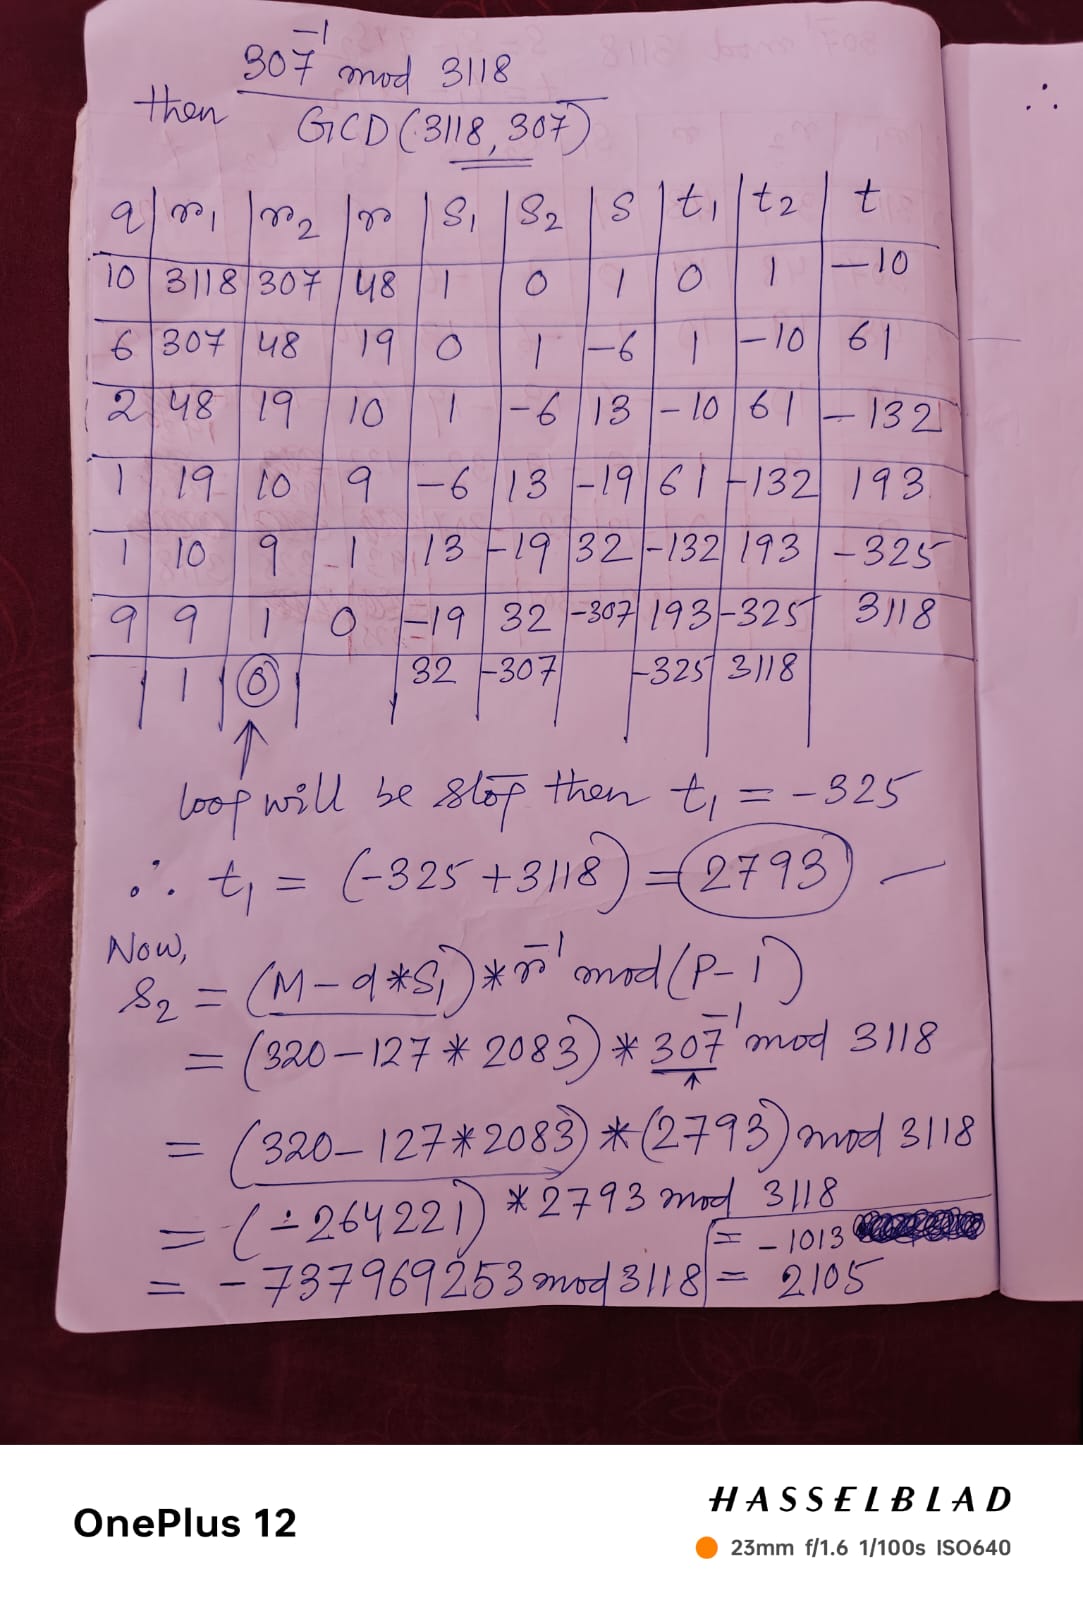 307⁻¹ mod 3118
then
GCD(3118, 307)
q | r₁ | r₂ | r | S₁ | S₂ | S | t₁ | t₂ | t
10 | 3118 | 307 | 48 | 1 | 0 | 1 | 0 | 1 | -10
6 | 307 | 48 | 19 | 0 | 1 | -6 | 1 | -10 | 61
2 | 48 | 19 | 10 | 1 | -6 | 13 | -10 | 61 | -132
1 | 19 | 10 | 9 | -6 | 13 | -19 | 61 | -132 | 193
1 | 10 | 9 | 1 | 13 | -19 | 32 | -132 | 193 | -325
9 | 9 | 1 | 0 | -19 | 32 | -307 | 193 | -325 | 3118
| 1 | 0 | | 32 | -307 | | -325 | 3118
loop will be stop then t₁ = -325
∴ t₁ = (-325 + 3118) = 2793
Now,
S₂ = (M - d * S₁) * r⁻¹ mod (P-1)
= (320 - 127 * 2083) * 307⁻¹ mod 3118
= (320 - 127 * 2083) * (2793) mod 3118
= (-264221) * 2793 mod 3118
= -1013
= -737969253 mod 3118 = 2105
OnePlus 12
HASSELBLAD
23mm f/1.6 1/100s ISO640